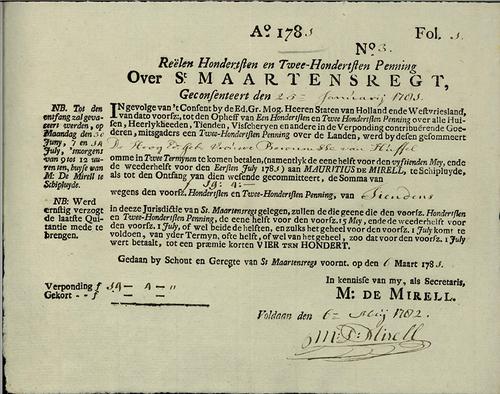 Aº 1783
Fol. 3.
Nº 3.
Reëlen Hondertsten en Twee-Hondertsten Penning
Over St MAARTENSREGT,
Geconsenteert den 25e January 1783.
NB. Tot den
ontfang zal geva-
ceerd werden, op
Maandag den
Juny, 7 en
July, 'smorgens
van 9 tot 12 uu-
ren ten, huyse van
M: De Mirell te
Schipluyde.
NB: Werd
ernstig verzogt
de laatste Qui-
tantie mede te
brengen.
INgevolge van 't Consent by de Ed. Gr. Mog. Heeren Staten van Holland ende Westvriesland,
van dato voorsz, tot den Opheff van Een Hondertsten en Twee Hondertsten Penning over alle Hui-
sen, Heerlykheeden, Tienden, Visscheryen en andere in de Verponding contribuërende Goe-
deren, mitsgaders een Twee-Hondertsten Penning over de Landen, werd by desen gesommeert
De Hoog
omme in Twee Termynen te komen betalen, (namentlyk de eene helft voor den vyftienden Mey, ende
de wederhelft voor den Eersten July 1783) aan MAURITIUS DE MIRELL, te Schipluyde,
als tot den Ontfang van dien wesende gecommitteert, de Somma van
59: 4: —
wegens den voorsz. Hondertsten en Twee-Hondertsten Penning, van
in deeze Jurisdictie van St. Maartensregt gelegen, zullen de die geene die den voorsz. Hondertsten
en Twee-Hondertsten Penning, de eene helft voor den voorsz. 15 Mey, ende de wederhelft voor
den voorsz. 1 July, of wel beide de helften, en zulks het geheel voor den voorsz. 1 July komt te
voldoen, van yder Termyn, ofte helft, of wel van het geheel, zoo dat voor den voorsz. 1 July
wert betaalt, tot een præmie korten VIER TEN HONDERT.
Gedaan by Schout en Geregte van St Maartensregt voornt. op den 6 Maart 1783.
Verponding f 59 — 4 — "
Gekort - - f — —
In kennisse van my, als Secretaris,
M: DE MIRELL.
Voldaan den 6e Mey
M: D: Mirell